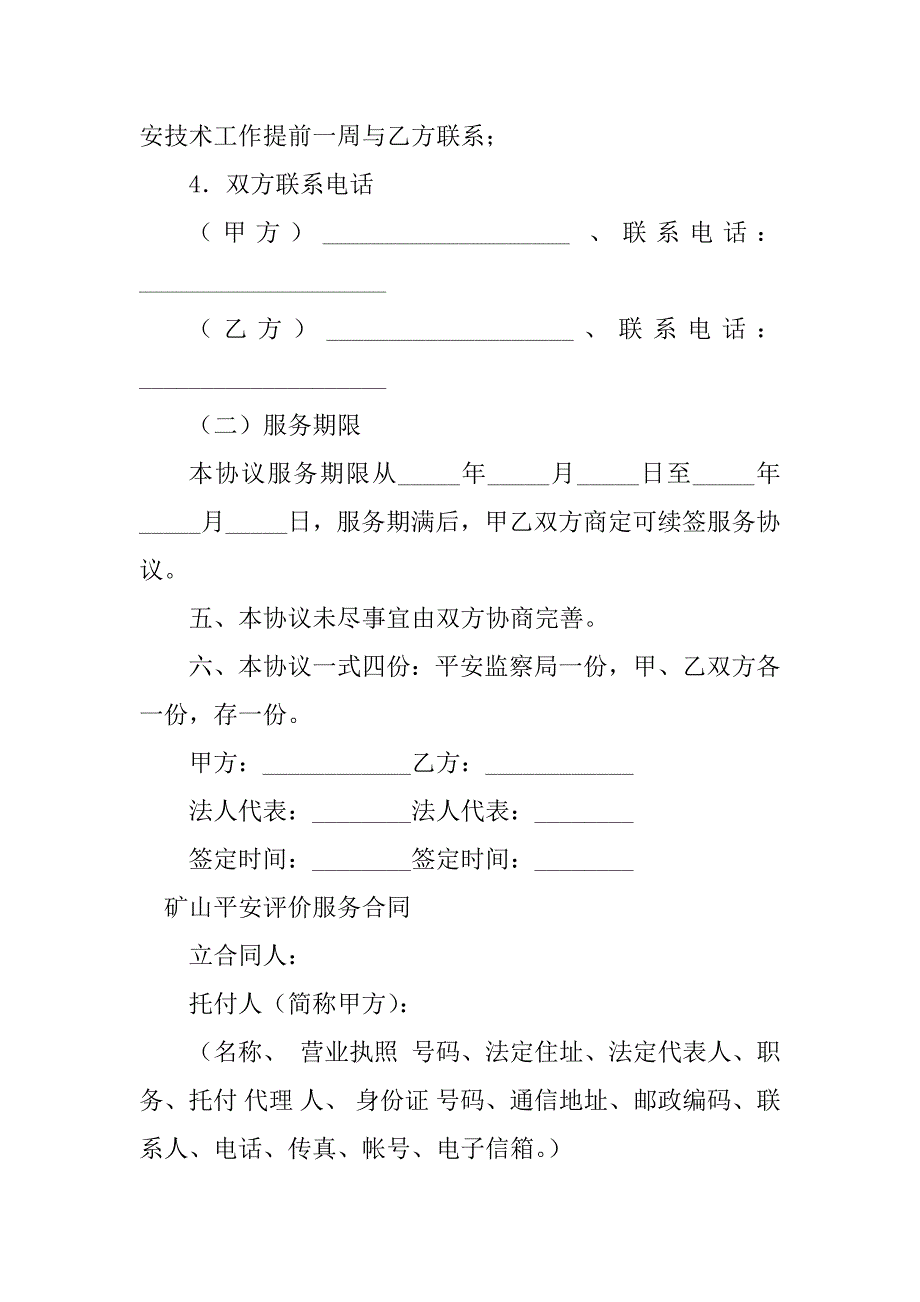 安技术工作提前一周与乙方联系；
4．双方联系电话
（甲方）____________________、联系电话：
____________________
（乙方）____________________、联系电话：
____________________
（二）服务期限
本协议服务期限从_____年_____月_____日至_____年
_____月_____日，服务期满后，甲乙双方商定可续签服务协
议。
五、本协议未尽事宜由双方协商完善。
六、本协议一式四份：平安监察局一份，甲、乙双方各
一份，存一份。
甲方：____________乙方：____________
法人代表：________法人代表：________
签定时间：________签定时间：________
矿山平安评价服务合同
立合同人：
托付人（简称甲方）：
（名称、 营业执照 号码、法定住址、法定代表人、职
务、托付 代理 人、 身份证 号码、通信地址、邮政编码、联
系人、电话、传真、帐号、电子信箱。）